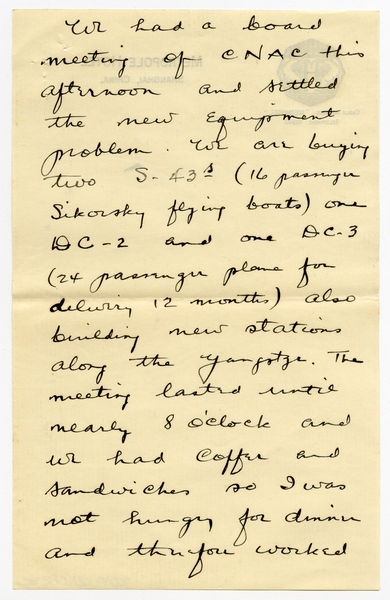 We had a board
meeting of CNAC this
afternoon and settled
the new equipment
problem. We are buying
two S-43s (16 passenger
Sikorsky flying boats) one
DC-2 and one DC-3
(24 passenger plane for
delivery 12 months) also
building new stations
along the Yangstze. The
meeting lasted until
nearly 8 o'clock and
we had coffee and
sandwiches so I was
not hungry for dinner
and therefore worked